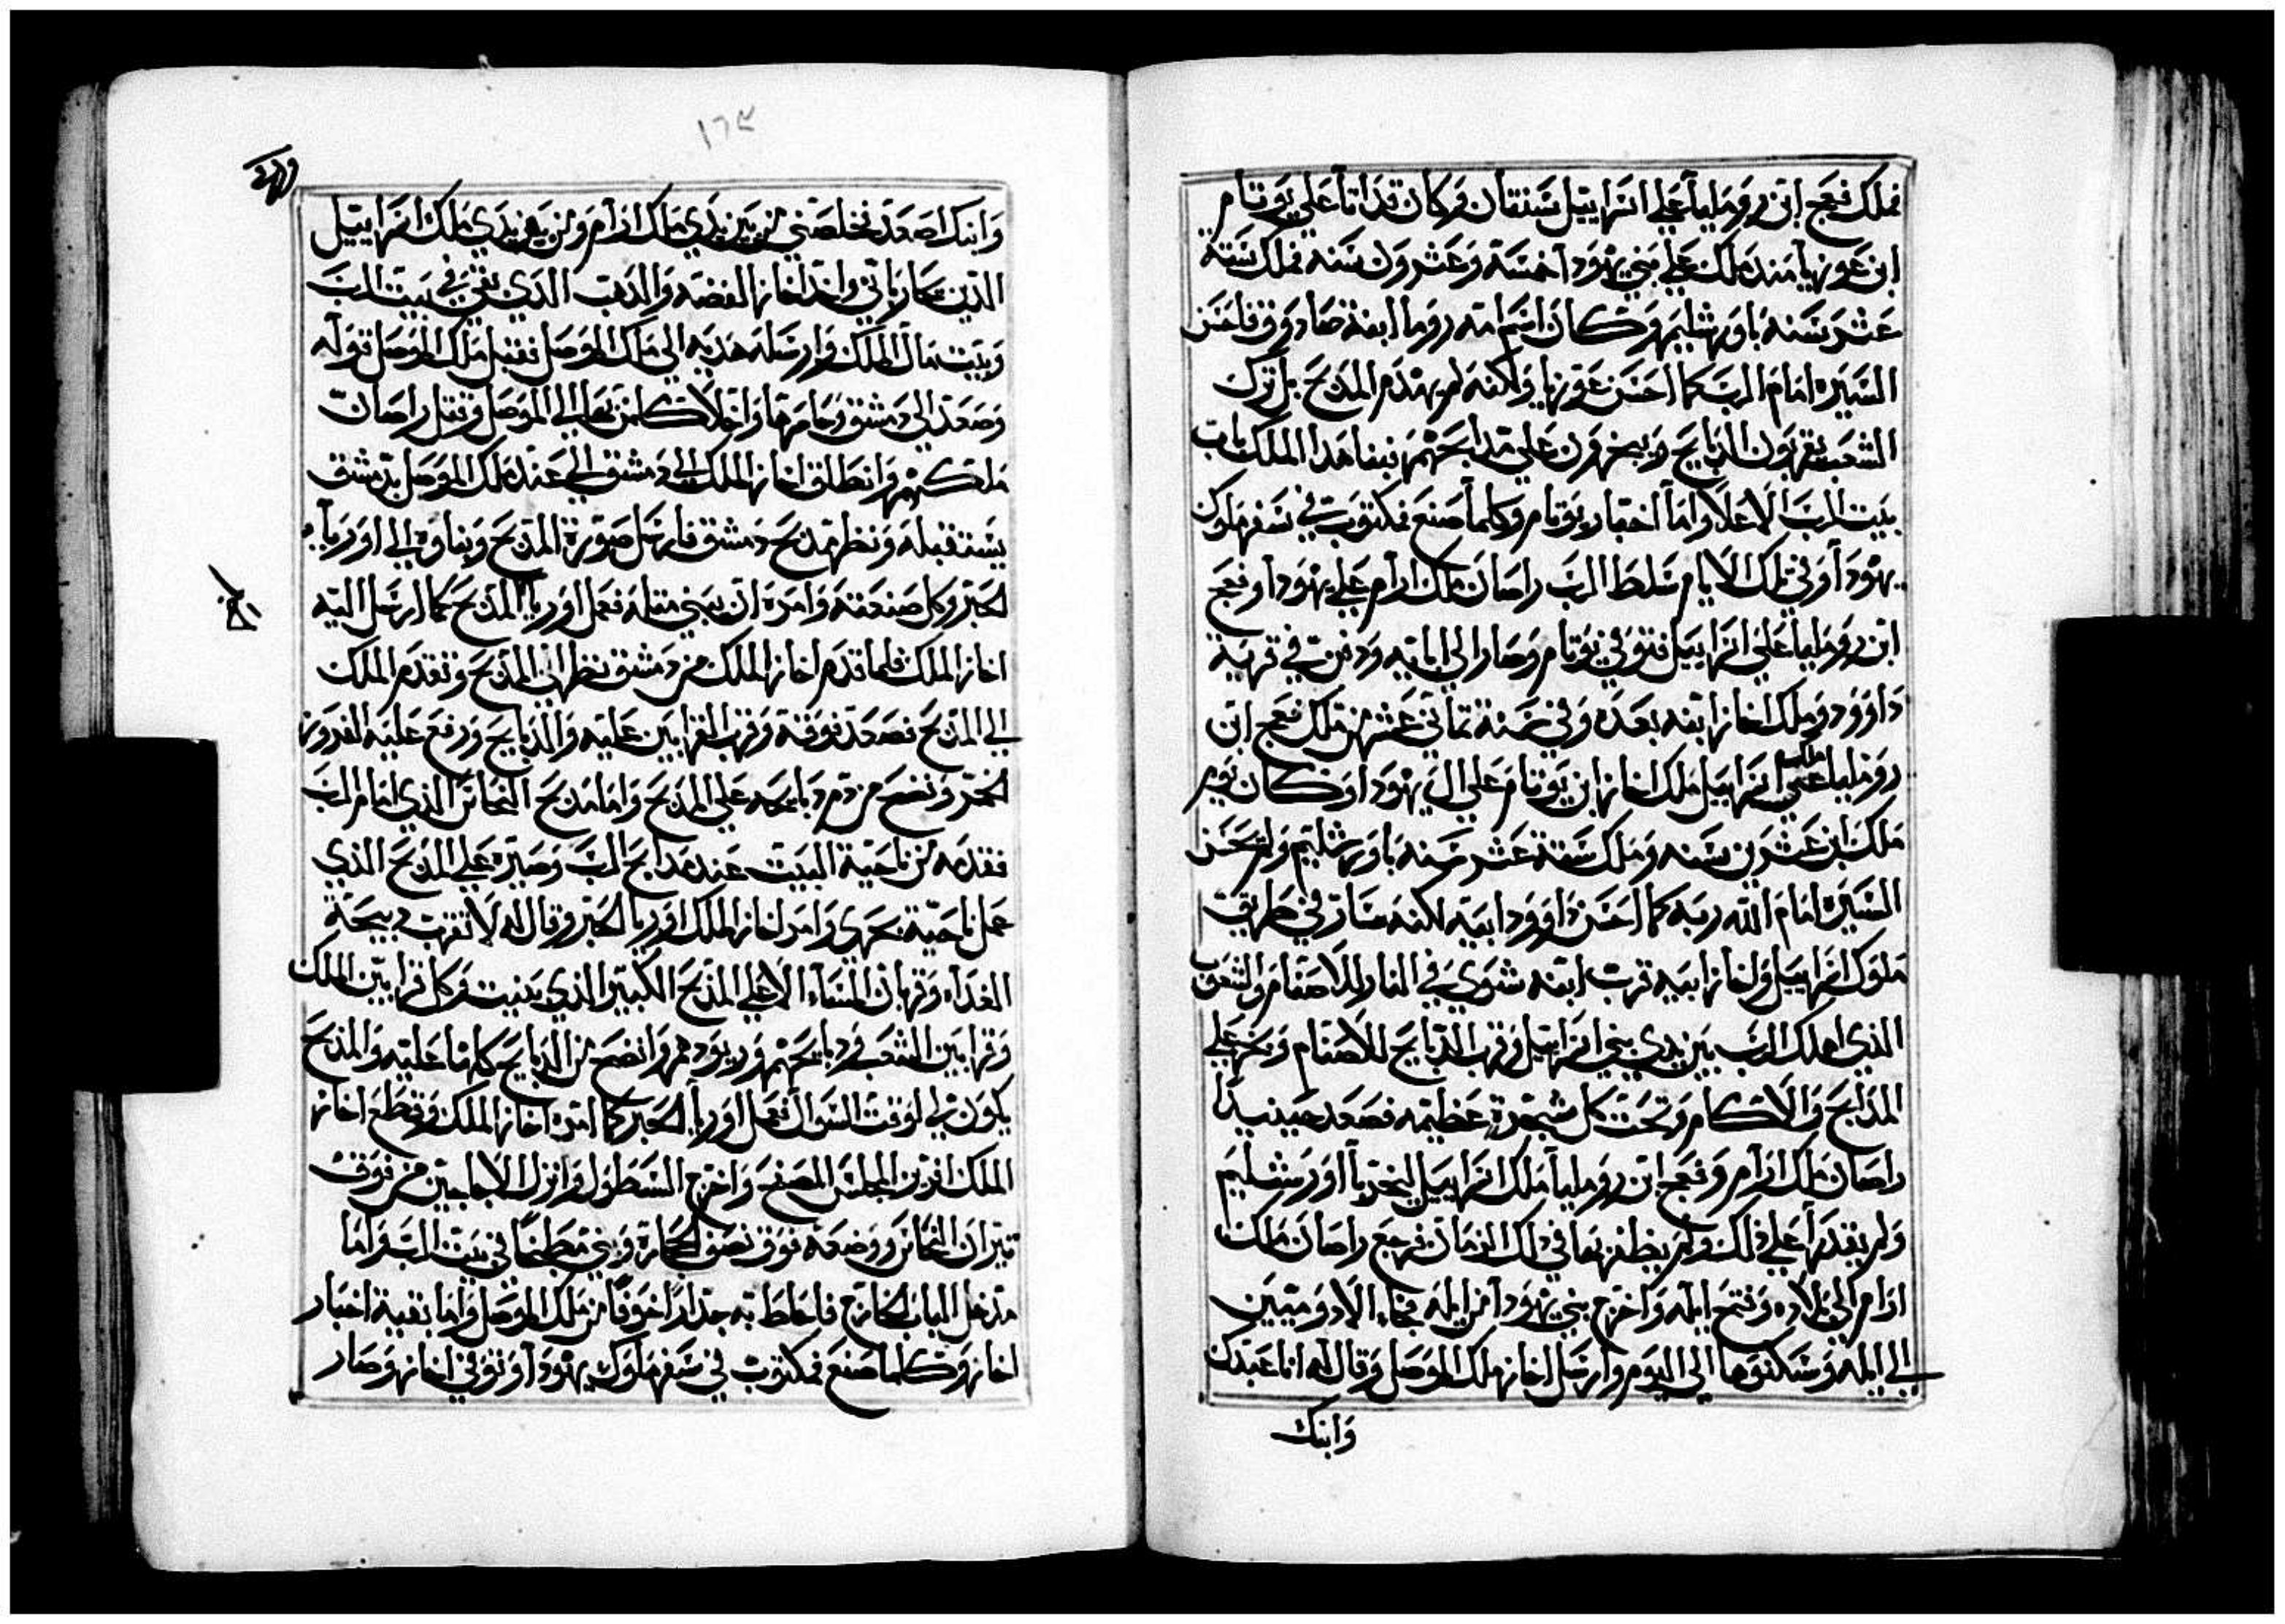 فملك فقح ابن روملياً علي اسراييل سنتان وكان قد اتا علي يوتام
ابن عوزيا مند ملك علي بني يهودا خمسة وعشرون سنه فملك ستة
عشر سنه باورشليم وكان اسم امه روما ابنة صادوق فاحسن
السيره امام الرب كما احسن عوزيا ولكنه لم يهدم المدبح بل ترك
الشعب يقربون الدبايح ويبخرون علي مدابحهم فبنا هدا الملك باب
بيت الرب الاعلا واما اخبار يوتام وكلما صنع فمكتوب في سفر ملوك
يهودا وفي تلك الايام سلط الرب راصان ملك ارام علي يهودا وفقح
ابن رومليا علي اسراييل فتوفي يوتام وصار الي ابايه ودفن في قرية
داوود وملك اخاز ابنه بعده وفي سنة تماني عشر من ملك فقح ابن
رومليا علي اسراييل ملك اخاز ابن يوتام علي ال يهودا وكان يوم
ملك ابن عشرين سنه وملك ستة عشر سنه باورشليم ولم يحسن
السيره امام الله ربه كما احسن داوود ابيه لكنه سار في طريق
ملوك اسراييل واخاز ابيه قرب ابنه شوي في النار للاصنام والشعوب
الذي اهلك الرب بين يدي بني اسراييل وقرب الدبايح للاصنام وبخر علي
المدابح والاكام وتحت كل شجرة عظيمه فصعد حينيداً
راصان ملك ارام وفقح ابن روملياً ملك اسراييل ليخربا اورشليم
ولم يقدرا علي دلك ولم يظفر بها في دلك الزمان فرجع راصان ملك
ارام الي بلاده وفتح ايله واخرج بني يهودا من ايله فجاء الادوميين
الي ايله وسكنوها الي اليوم وارسل اخاز ملك الموصل وقال له انا عبدك
وابنك
١٦٥
وابنك اصعد فخلصني من بين يدي ملك ارام ومن بين يدي ملك اسراييل
الذين يحارباني واخد اخاز الفضه والدهب الذي بقي في بيت الرب
وبيت مال الملك وارسله هديه الي ملك الموصل فقبل ملك الموصل قوله
وصعد الي دمشق وحاصرها واجلا كلمن بها الي الموصل وقتل راصان
ملكهم وانطلق اخاز الملك الي دمشق الي عند ملك الموصل بدمشق
يستقبله ونظر مدبح دمشق فارسل صورة المدبح وبناوه الي اورياً
الحبر وكل صنعته وامره ان يبني مثله فعمل اوريا المدبح كما ارسل اليه
اخاز الملك فلما قدم اخاز الملك من دمشق نظر الي المدبح وتقدم الملك
الي المدبح فصعد فوقه وقرب القرابين عليه والدبايح ورفع عليه القرون
الخمر ونضح من دم دبايحه علي المدبح واما مدبح النحاس الذي امام الرب
فقدمه من ناحية البيت عند مدابح الرب وصيره علي المدبح الذي
عمل ناحية بحري وامر اخاز الملك اوريا الحبر وقال له لا تقرب دبيحة
الغداه وقربان المساء الا علي المدبح الكبير الذي بنيت وكل قرابين الملك
وقرابين الشعب ودبايحهم وريودهم وانضح من الدبايح كلها عليه والمدبح
يكون لي لوقت السوال ففعل اوريا الحبر كما امره اخاز الملك وقطع اخاز
الملك المجلس المصفح واخرج السطول وانزل الاجاجين من فوق
تيران النحاس ووضعه فوق نصف الحجاره وبني مطبخاً في بيت الرب واما
مدخل الباب الخارج فاحاط به جداراً خوفاً من ملك الموصل واما بقية اخبار
اخاز وكلما صنع فمكتوب في سفر ملوك يهودا وتوفي اخاز وصار